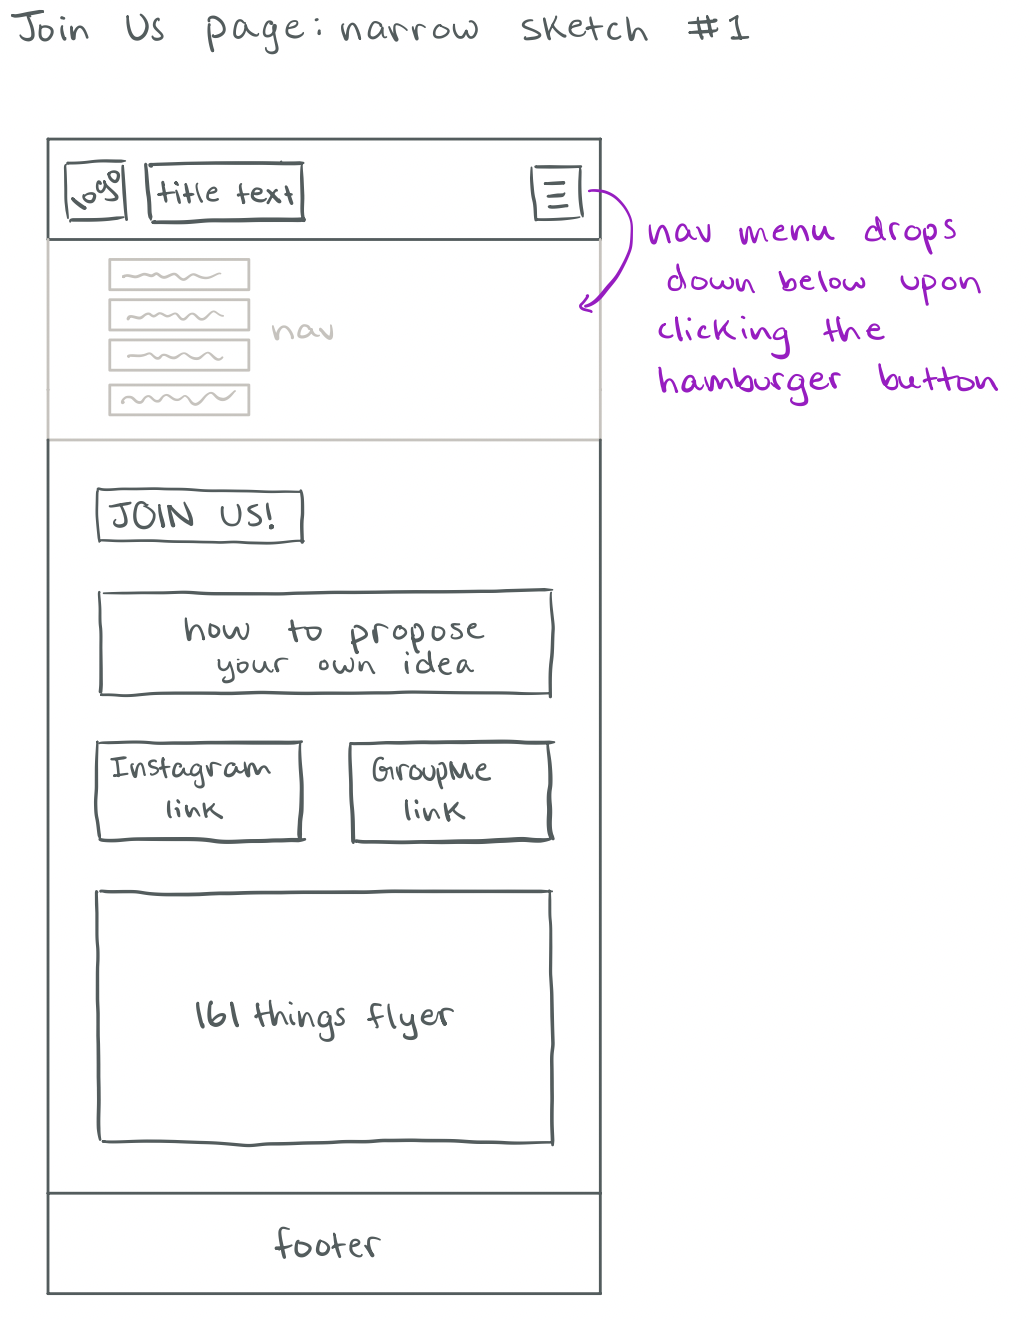 Join Us page: narrow sketch #1
logo
title text
nav menu drops
down below upon
clicking the
hamburger button
nav
JOIN US!
how to propose
your own idea
Instagram
link
GroupMe
link
161 things flyer
footer